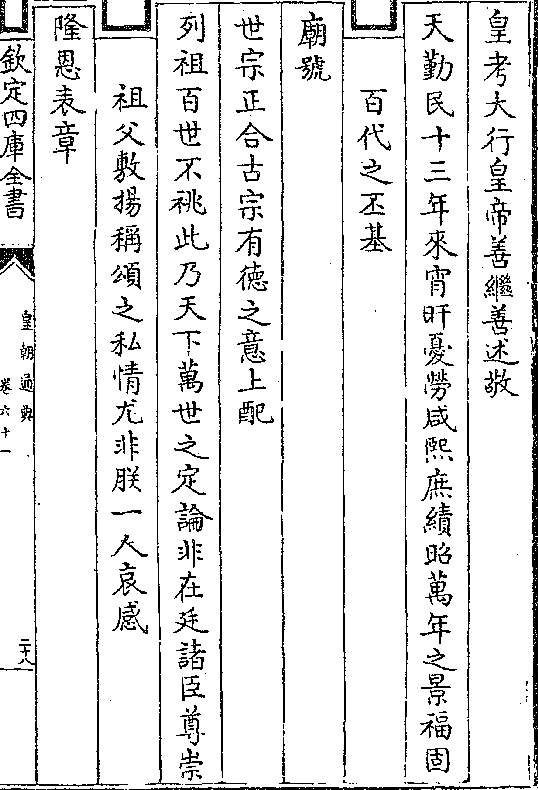 皇考大行皇帝善繼善述敬
天勤民十三年來宵旰憂勞咸熙庶績昭萬年之景福固
百代之丕基
廟號
世宗正合古宗有德之意上配
列祖百世不祧此乃天下萬世之定論非在廷諸臣尊崇
祖父敷揚稱頌之私情尤非朕一人哀感
隆恩表章
欽定四庫全書
皇朝通典
卷六十一
二十八